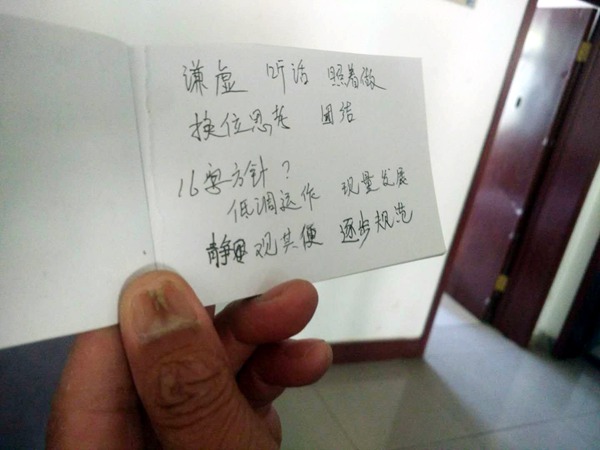 谦虚 听话 照着做
换位思考 团结
16字方针?
低调运作 现量发展
静观其便 逐步规范